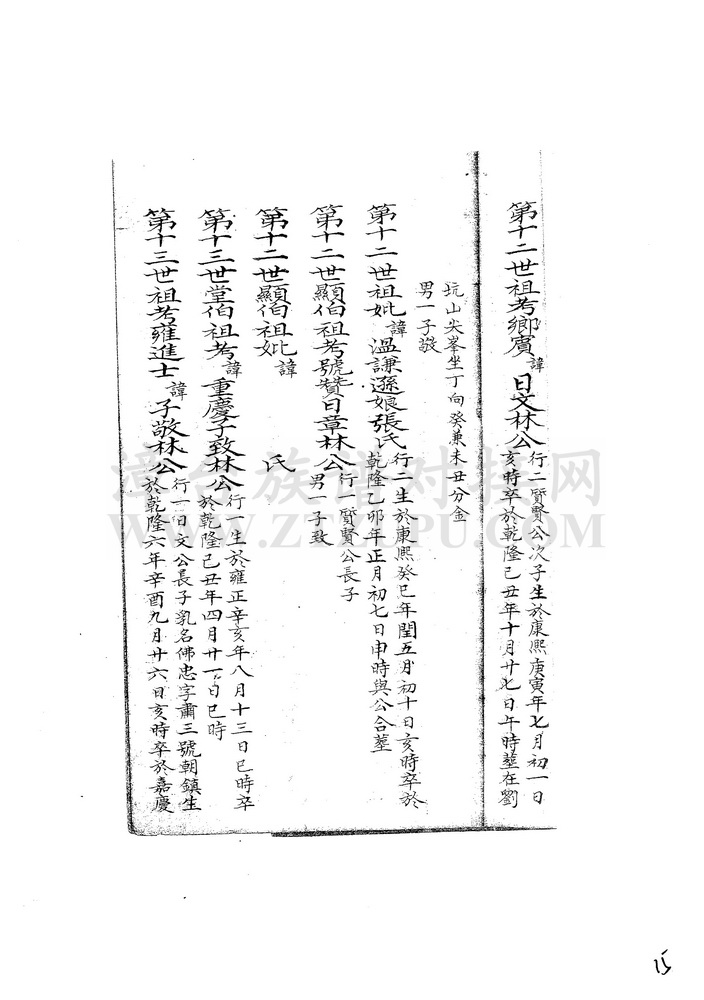 第十二世祖考鄉賓諱日文林公行二質賢公次子生於康熙庚寅年七月初一日
亥時卒於乾隆己丑年十月廿七日午時塟在劉
坑山尖峯坐丁向癸兼未丑分金
男一子敬
第十二世祖妣諱溫謙遜娘張氏行二生於康熙癸巳年閏五月初十日亥時卒於
乾隆乙卯年正月初七日申時與公合塟
第十二世顯伯祖考號贊日章林公行一質賢公長子
男一子致
第十二世顯伯祖妣諱 氏
第十三世堂伯祖考諱重慶子致林公行一生於雍正辛亥年八月十三日巳時卒
於乾隆己丑年四月廿一日巳時
第十三世祖考雍進士諱子敬林公行一日文公長子乳名佛忠字肅三號朝鎮生
於乾隆六年辛酉九月廿六日亥時卒於嘉慶
15
漳台族谱对接网
WWW.ZTZUPU.COM